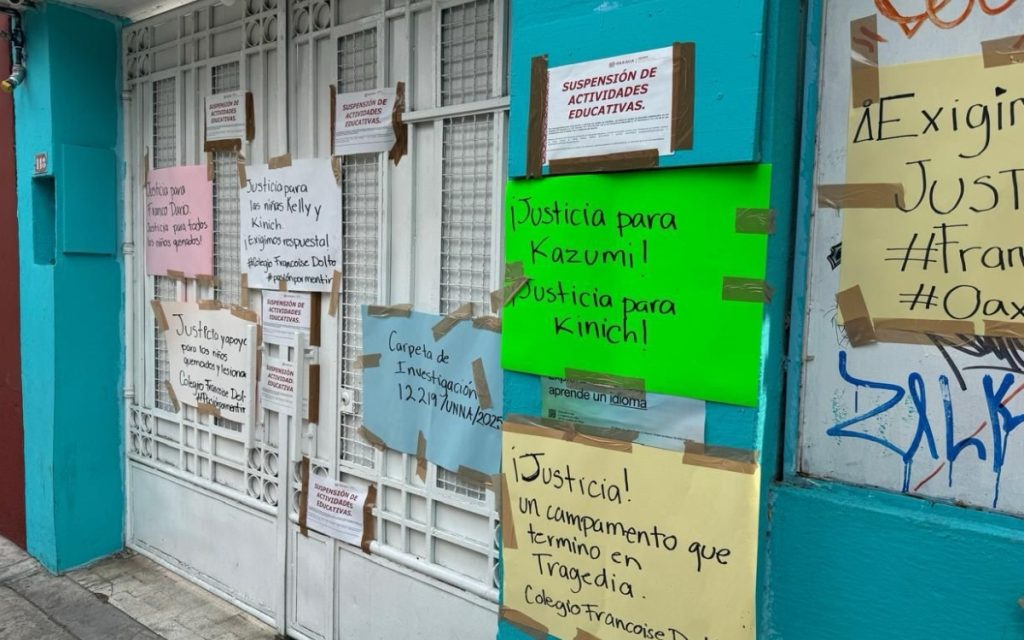 SUSPENSIÓN DE
ACTIVIDADES
EDUCATIVAS.
SUSPENSIÓN DE
ACTIVIDADES
EDUCATIVAS.
OAXACA
SUSPENSIÓN DE
ACTIVIDADES
EDUCATIVAS.
Justicia para
Justicia para todos
los niños quemados!
Justicia para
las niñas Kelly y
Kinich.
¡Exigimos respuesta!
#Colegio Francoise Dolto
¡Justicia para
Kazumi!
Justicia para
Kinich!
¡Exigir
JUST
#Fran
#Oax
SUSPENSIÓN DE
ACTIVIDADES
EDUCATIVAS.
SUSPENSIÓN DE
ACTIVIDADES
EDUCATIVAS.
Justicia y apoyo
para los niños
quemados y lesiona
Colegio Francoise Dolt
Carpeta de
Investigación
12219/UNNA/2025
aprende un idioma
¡Justicia!
un campamento que
termino en
Tragedia.
Colegio Francoise Dolto
SUSPENSIÓN DE
ACTIVIDADES
EDUCATIVAS.